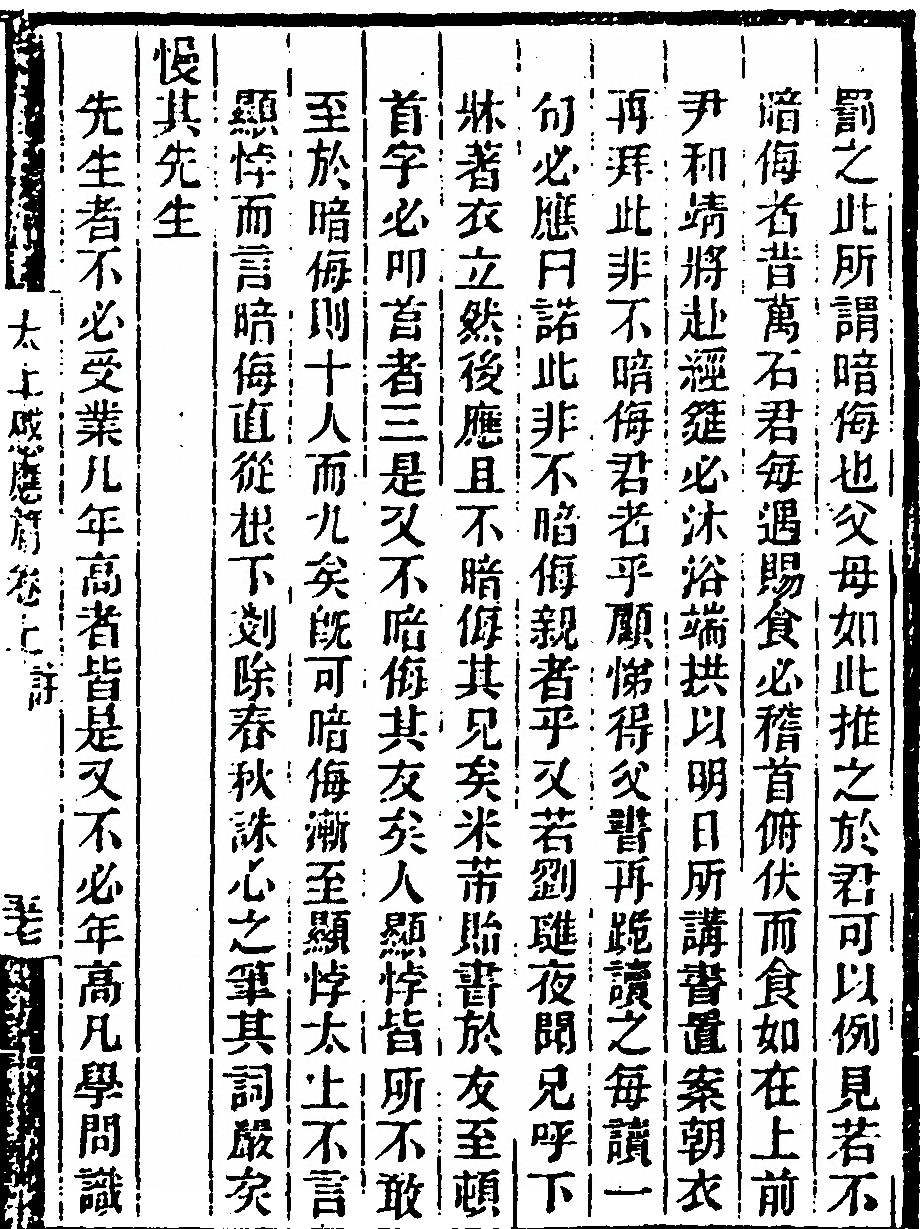 罰之此所謂暗侮也父母如此推之於君可以例見若不
暗侮者昔萬石君每遇賜食必稽首俯伏而食如在上前
尹和靖將赴經筵必沐浴端拱以明日所講書置案朝衣
再拜此非不暗侮君者乎顧悌得父書再跪讀之每讀一
句必應曰諾此非不暗侮親者乎又若劉璡夜聞兄呼下
牀著衣立然後應且不暗侮其兄矣米芾貽書於友至頓
首字必叩首者三是又不暗侮其友矣人顯悖皆所不敢
至於暗侮則十人而九矣既可暗侮漸至顯悖太上不言
顯悖而言暗侮直從根下剗除春秋誅心之筆其詞嚴矣
慢其先生
先生者不必受業凡年高者皆是又不必年高凡學問識
太上感應篇卷上 註